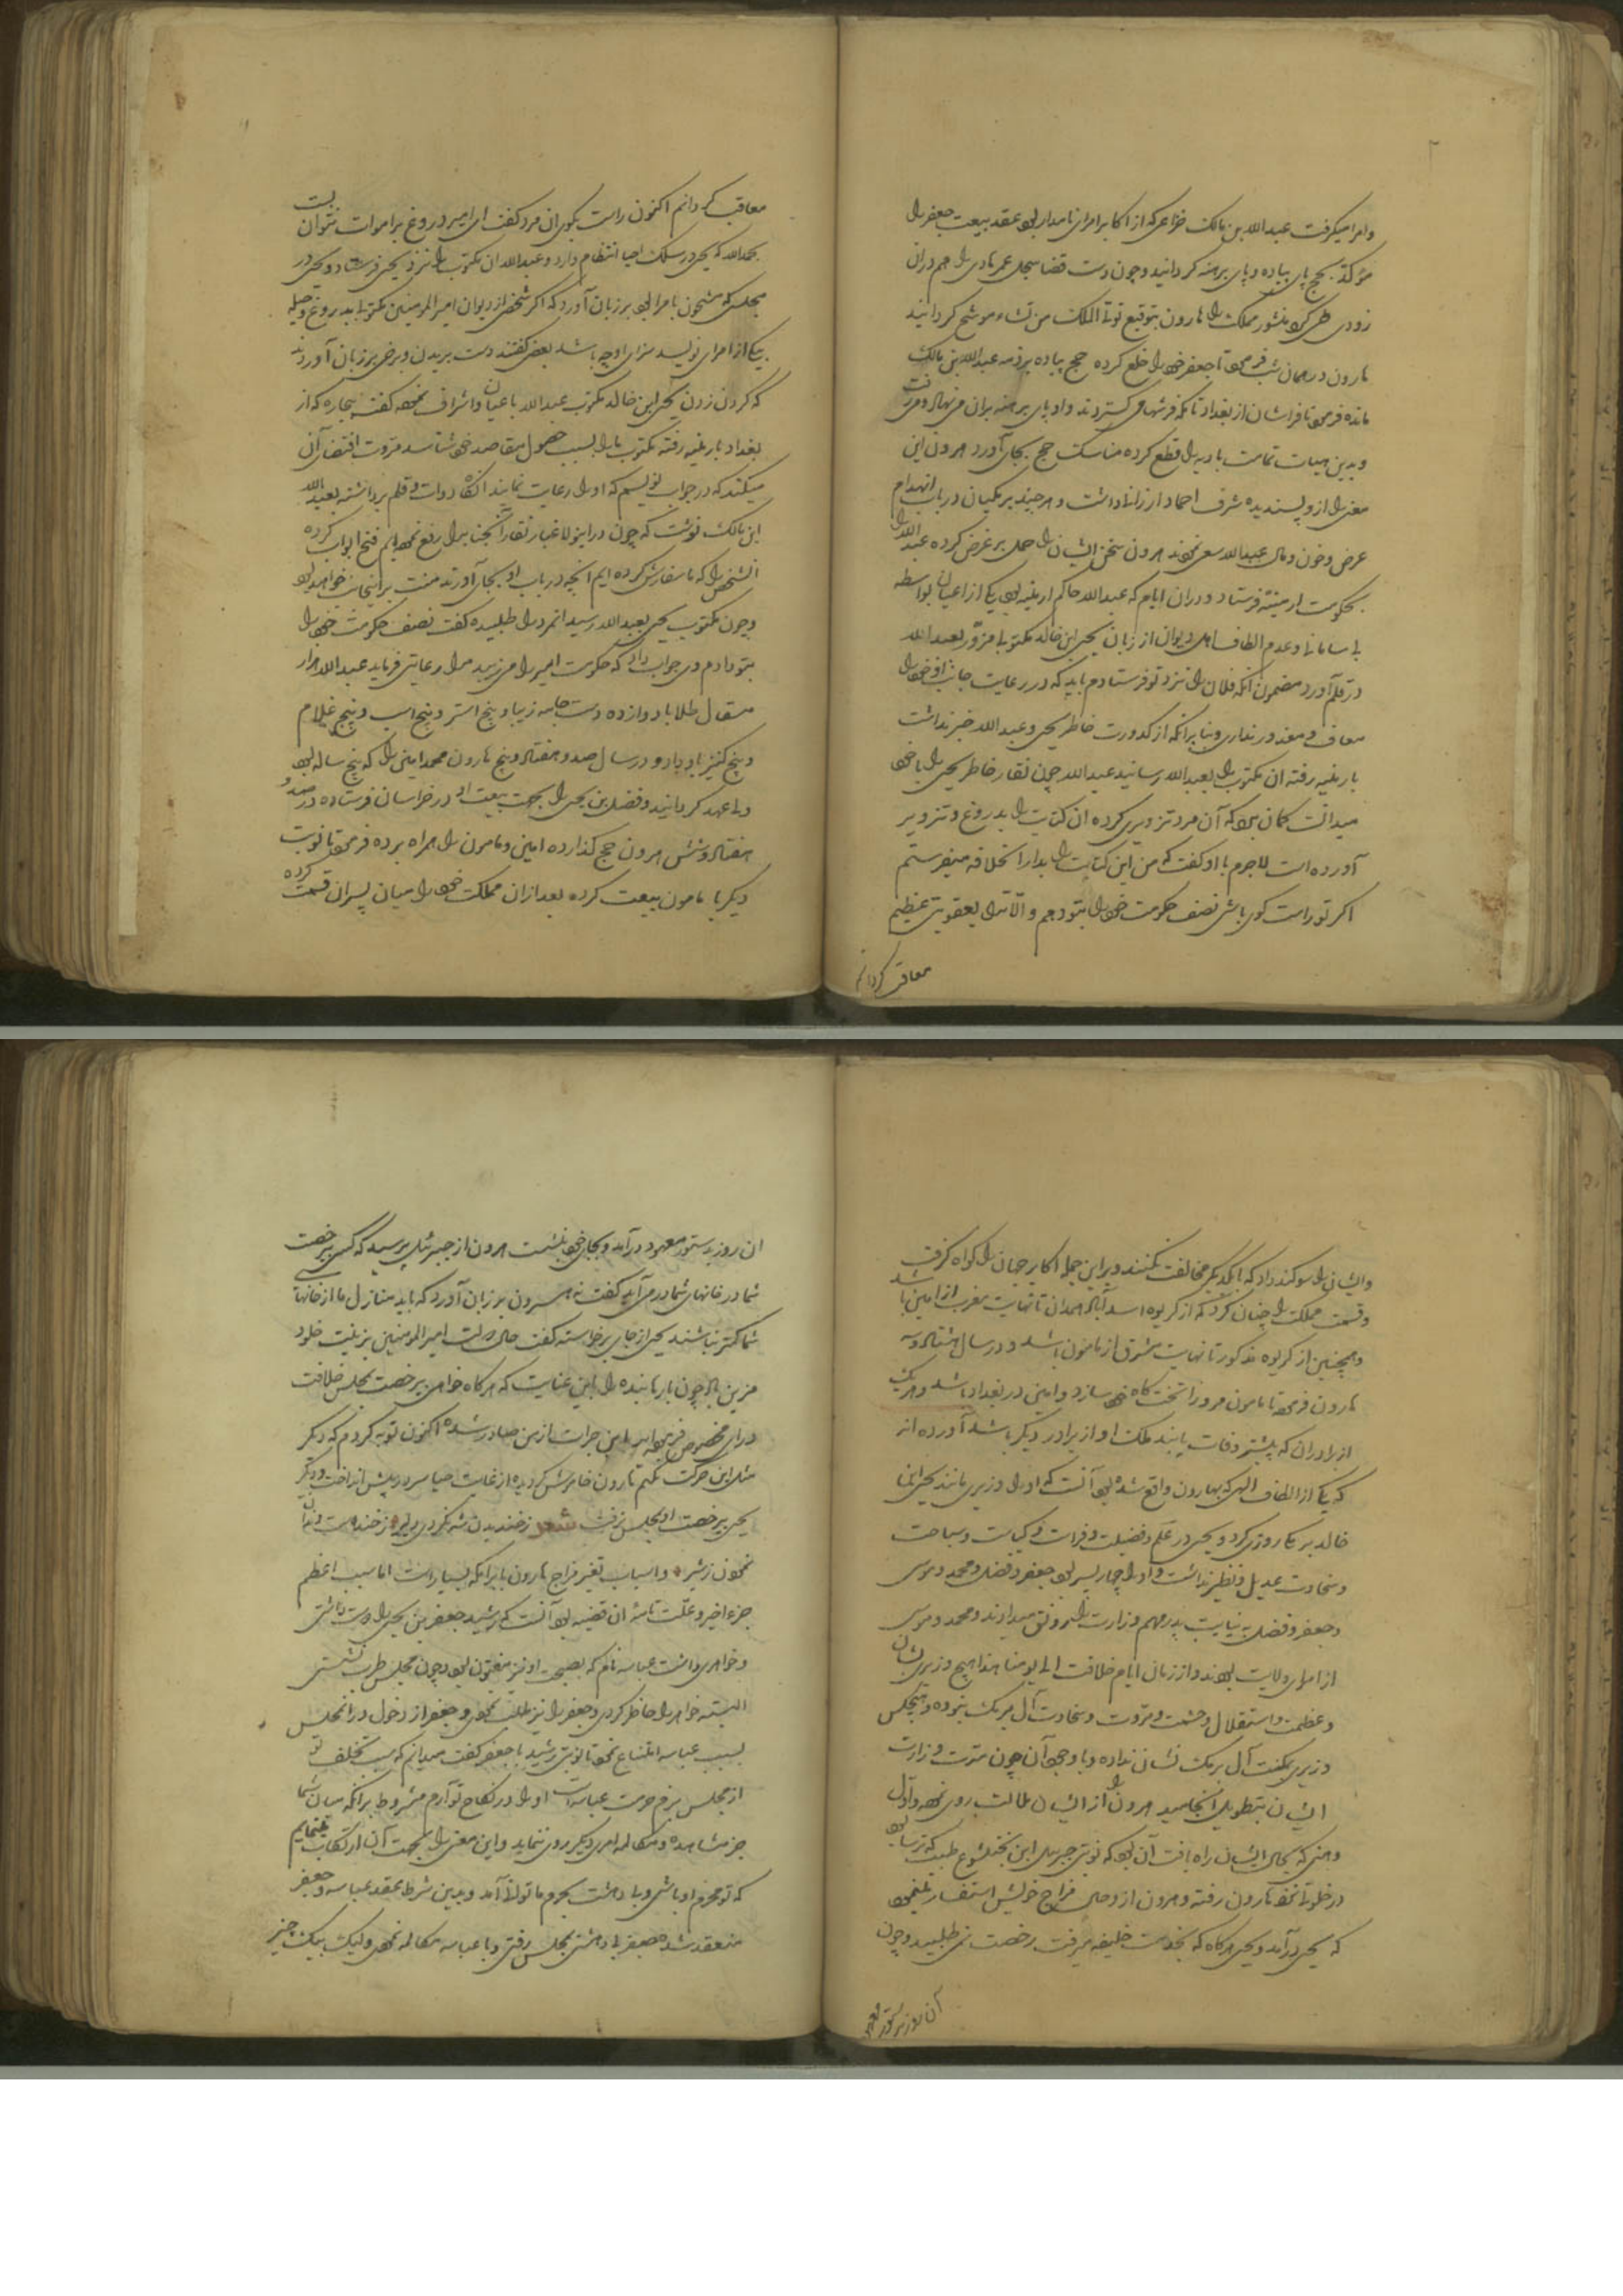 وامرا میکرفت عبدالله بن مالک خزاعی که از اکابر امرای نامدار بود عقد بیعت جعفر را
مؤکد بحج پای پیاده و پای برهنه کردانید و چون دست قضا سجل عمر هادی را هم دران
زودی طی کرد منشور مملکت را هارون بتوقیع تؤتی الملک من تشاء موشح کردانید
هارون در همان شب فرمود تا جعفر خود را خلع کرده حج پیاده بر ذمه عبدالله بن مالک
مانده فرمود تا فراشان از بغداد تا مکه فرشها می کستردند و او پای برهنه بران می نهاد و می رفت
و بدین هیات تمامت بادیه را قطع کرده مناسک حج بجای آورد هرون این
معنی را ازو پسندیده شرف احماد ارزانی داشت و هر چند برمکیان در باب انهدام
عرض و خون و مال عبدالله سعی نمودند هرون سخن ایشان را حمل بر غرض کرده عبدالله را
بحکومت ارمنیه فرستاد و دران ایام که عبدالله حاکم ارمنیه بود یکی از اعیان بواسطه
بی سامانی و عدم الطاف اهل دیوان از زبان یحیی ابن خالد مکتوبی مزور بعبدالله
در قلم آورد مضمون آنکه فلان را نزد تو فرستادم باید که در رعایت جانب او خود را
معاف و معذور نداری و بنابرانکه از کدورت خاطر یحیی و عبدالله خبر نداشت
بارمنیه رفته ان مکتوب را بعبدالله رسانید عبدالله چون نقار خاطر یحیی را با خود
میدانست کمان برد که آن مرد تزویری کرده ان کتابت را بدروغ و تزویر
آورده است لاجرم با او کفت که من این کتابت را بدار الخلافه میفرستم
اکر تو راست کوی باشی نصف حکومت خود را بتو دهم و الا ترا بعقوبتی عظیم
معاقب کردانم
معاقب کردانم اکنون راست بکوی ان مرد کفت ای امیر دروغ بر اموات نتوان بست
بحمدالله که یحیی در سلک احیا انتظام دارد و عبدالله ان مکتوب را نزد یحیی فرستاد و یحیی در
مجلسی که مشحون بامرا بود بر زبان آورد که اکر شخصی از دیوان امیر المومنین مکتوبی بدروغ و حیله
بیکی از امرای نویسد سزای او چه باشد بعضی کفتند دست بریدن و برخی بر زبان آوردند
که کردن زدن یحیی ابن خالد مکتوب عبدالله باعیان و اشراف نموده کفت بیچاره که از
بغداد بارمنیه رفته مکتوب ما را بسبب حصول مقاصد خود شناسد مروت اقتضای آن
میکند که در جواب نویسیم که او را رعایت نمایند انکاه دوات و قلم برداشته بعبدالله
ابن مالک نوشت که چون درینولا غبار نقار انجناب را رفع نموده ایم فتح ابواب کرده
انشخص را که ما سفارش کرده ایم انچه در باب او بجای آورند منت بر اینجانب خواهد بود
و چون مکتوب یحیی بعبدالله رسید انمرد را طلبیده کفت نصف حکومت خود را
بتو دادم وی جواب داد که حکومت امیر را می زیبد مرا رعایتی فرماید عبدالله هزار
مثقال طلا با دوازده دست جامه زیبا و پنج استر و پنج اسب و پنج غلام
و پنج کنیز باو داد و در سال صد و هفتاد و پنج هارون محمد امین را که پنج ساله بود
ولی عهد کردانید و فضل بن یحیی را بجهت بیعت او در خراسان فرستاده در صد و
هفتاد و شش هرون حج کذارده امین و مامون را همراه برده فرمود تا نوبت
دیکر با مامون بیعت کرده بعد ازان مملکت خود را میان پسران قسمت کرده
و ایشان را سوکند داد که با یکدیکر مخالفت نکنند و برین جمله اکابر جهان را کواه کرفت
و قسمت مملکت را چنان کرد که از کریوه اسدآباد همدان تا نهایت مغرب از امین باشد
و همچنین از کریوه مذکور تا نهایت مشرق از مامون باشد و در سال هشتاد و سه
هارون فرمود تا مامون مرو را تخت کاه خود سازد و امین در بغداد باشد و هر یک
از برادران که پیشتر وفات یابند ملک او از برادر دیکر باشد آورده اند
که یکی از الطاف الهی که بهارون واقع شده بود آنست که او را وزیری مانند یحیی ابن
خالد برمکی روزی کرد و یحیی در علم و فضیلت و فراست و کیاست و سماحت
و سخاوت عدیل و نظیر نداشت و او را چهار پسر بود جعفر و فضل و محمد و موسی
و جعفر و فضل به نیابت پدر مهم وزارت را رونق میدادند و محمد و موسی
از امرای ولایت بودند و از زمان ایام خلافت الی یومنا هذا هیچ وزیری بشان
و عظمت و استقلال و حشمت و مروت و سخاوت آل برمک نبوده و هیچکس
وزیری بمکنت آل برمک نشان نداده و با وجود آن چون مدت وزارت
ایشان بتطویل انجامید هرون را از ایشان ملالت روی نمود و اول
وهنی که بحال ایشان راه یافت آن بود که نوبتی جبرییل ابن بختیشوع طبیب که ترسا بود
در خلوتی نزد هارون رفته و هرون از وی حال مزاج خویش استفسار مینمود
که یحیی درآمد و یحیی هرکاه که بخدمت خلیفه میرفت رخصت نمی طلبید و چون
آن روز بدستور معهود
ان روز بدستور معهود درآمد و بجای خود بنشست هرون از جبرئیل پرسید که کسی بی رخصت
شما در خانهای شما درمی آید کفت نه هرون بر زبان آورد که باید منازل ما از خانهای
شما کمتر نباشند یحیی از جای برخواسته کفت حال دولت امیر المومنین بزینت خلود
مزین باد چون بارها بنده را باین عنایت که هرکاه خواهی بی رخصت بمجلس خلافت
درای مخصوص فرموده اید این جرات از من صادر شده اکنون توبه کردم که دکر
مثل این حرکت نکنم هارون خاموش کردیده از غایت حیا سر در پیش انداخت و دیگر
یحیی بی رخصت او بمجلس نرفت شعر ز خندیدن شه نکردی دلیر ز خنده است دندان
نمودن ز شیر و اسباب تغیر مزاج هارون با برامکه بسیار است اما سبب اعظم
جزء اخیر و علت تامه ان قضیه بود آنست که رشید جعفر بن یحیی را دوست داشتی
و خواهری داشت عباسه نام که بصحبت او نیز مفتون بود و چون مجلس طرب نشستی
البته خواهر را حاضر کردی و جعفر را نیز طلب نمودی و جعفر از دخول در انمجلس
بسبب عباسه امتناع نمود تا نوبتی رشید با جعفر کفت میدانم که سبب تخلف تو
از مجلس بزم حرمت عباسه است او را در نکاح تو آرم مشروط برانکه میان شما
جز مشاهده و مکالمه امری دیکر روی ننماید و این معنی را بجهت آن ارتکاب مینمایم
که تو محرم او باشی و بی دهشت بحرم ما توانی آمد و بدین شرط عقد عباسه و جعفر
منعقد شده جعفر بی دهشتی بمجلس رفتی و با عباسه مکالمه نمودی و لیک بیک چیز